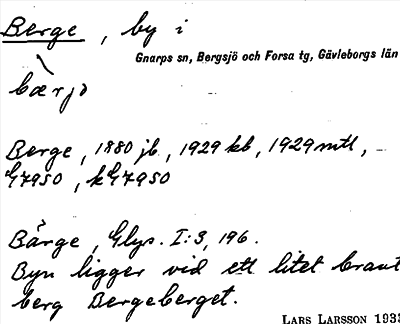 Berge, by i
Gnarps sn, Bergsjö och Forsa tg, Gävleborgs län
bærjə
Berge, 1880 jb, 1929 kb, 1929 mtl,
G7950, kG7950
Bärge, Glys. I:3, 196.
Byn ligger vid ett litet brant
berg Bergeberget.
LARS LARSSON 1933